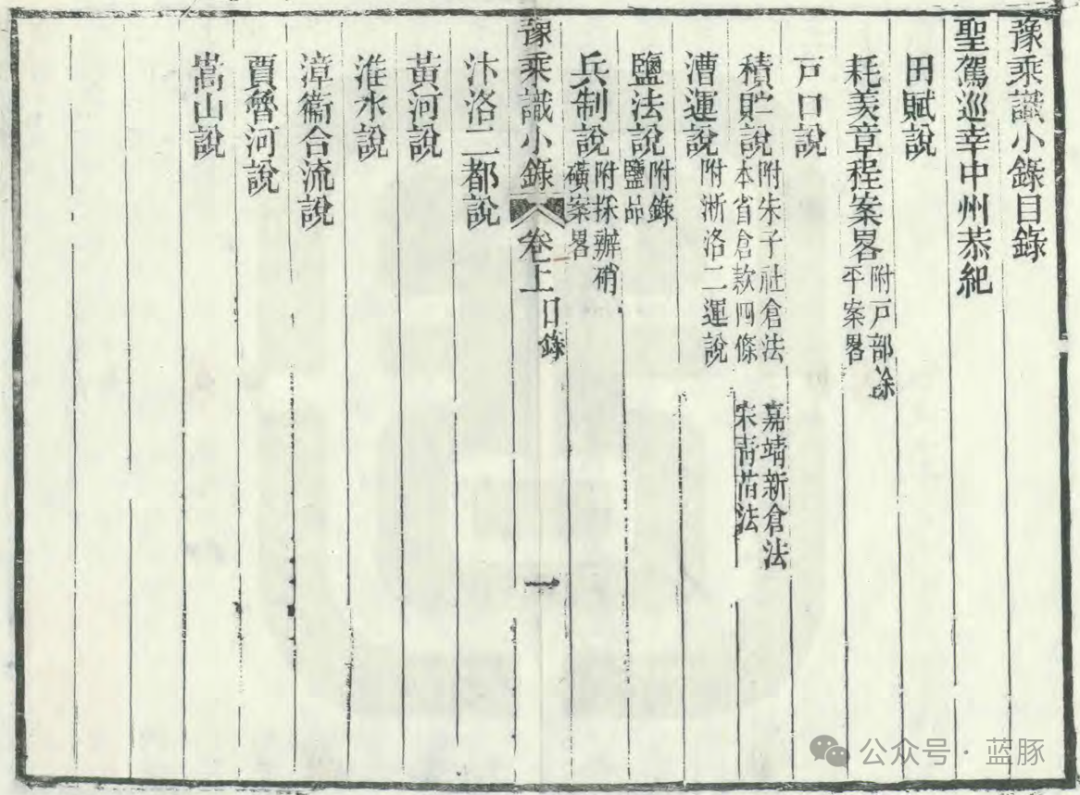 豫乘識小錄目錄
聖駕巡幸中州恭紀
田賦說
耗羡章程案畧 附戶部餘平案畧
戶口說
積貯說 附朱子社倉法 嘉靖新倉法 本省倉款四條 宋青苗法
漕運說 附淅洛二運說
鹽法說 附錄鹽品
兵制說 附採辦硝磺案畧
豫乘識小錄 卷上目錄 一
汴洛二都說
黃河說
淮水說
漳衞合流說
賈魯河說
嵩山說
公众号·蓝豚